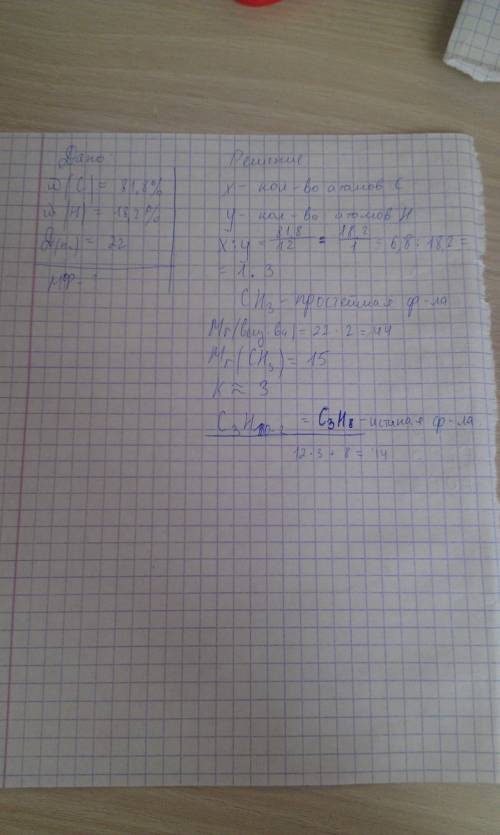 Дано
w(C) = 81,8%
w(H) = 18,2%
D(H₂) = 22
мф - ?
Решение
x - кол-во атомов C
y - кол-во атомов H
x:y = 81,8/12 = 18,2/1 = 6,8:18,2 =
= 1:3
CH₃ - простейшая ф-ла
Mr( ) = 22·2 = 44
Mr(CH₃) = 15
K ≈ 3
C₃H = C₃H₈ - истиная ф-ла
12·3 + 8 = 44